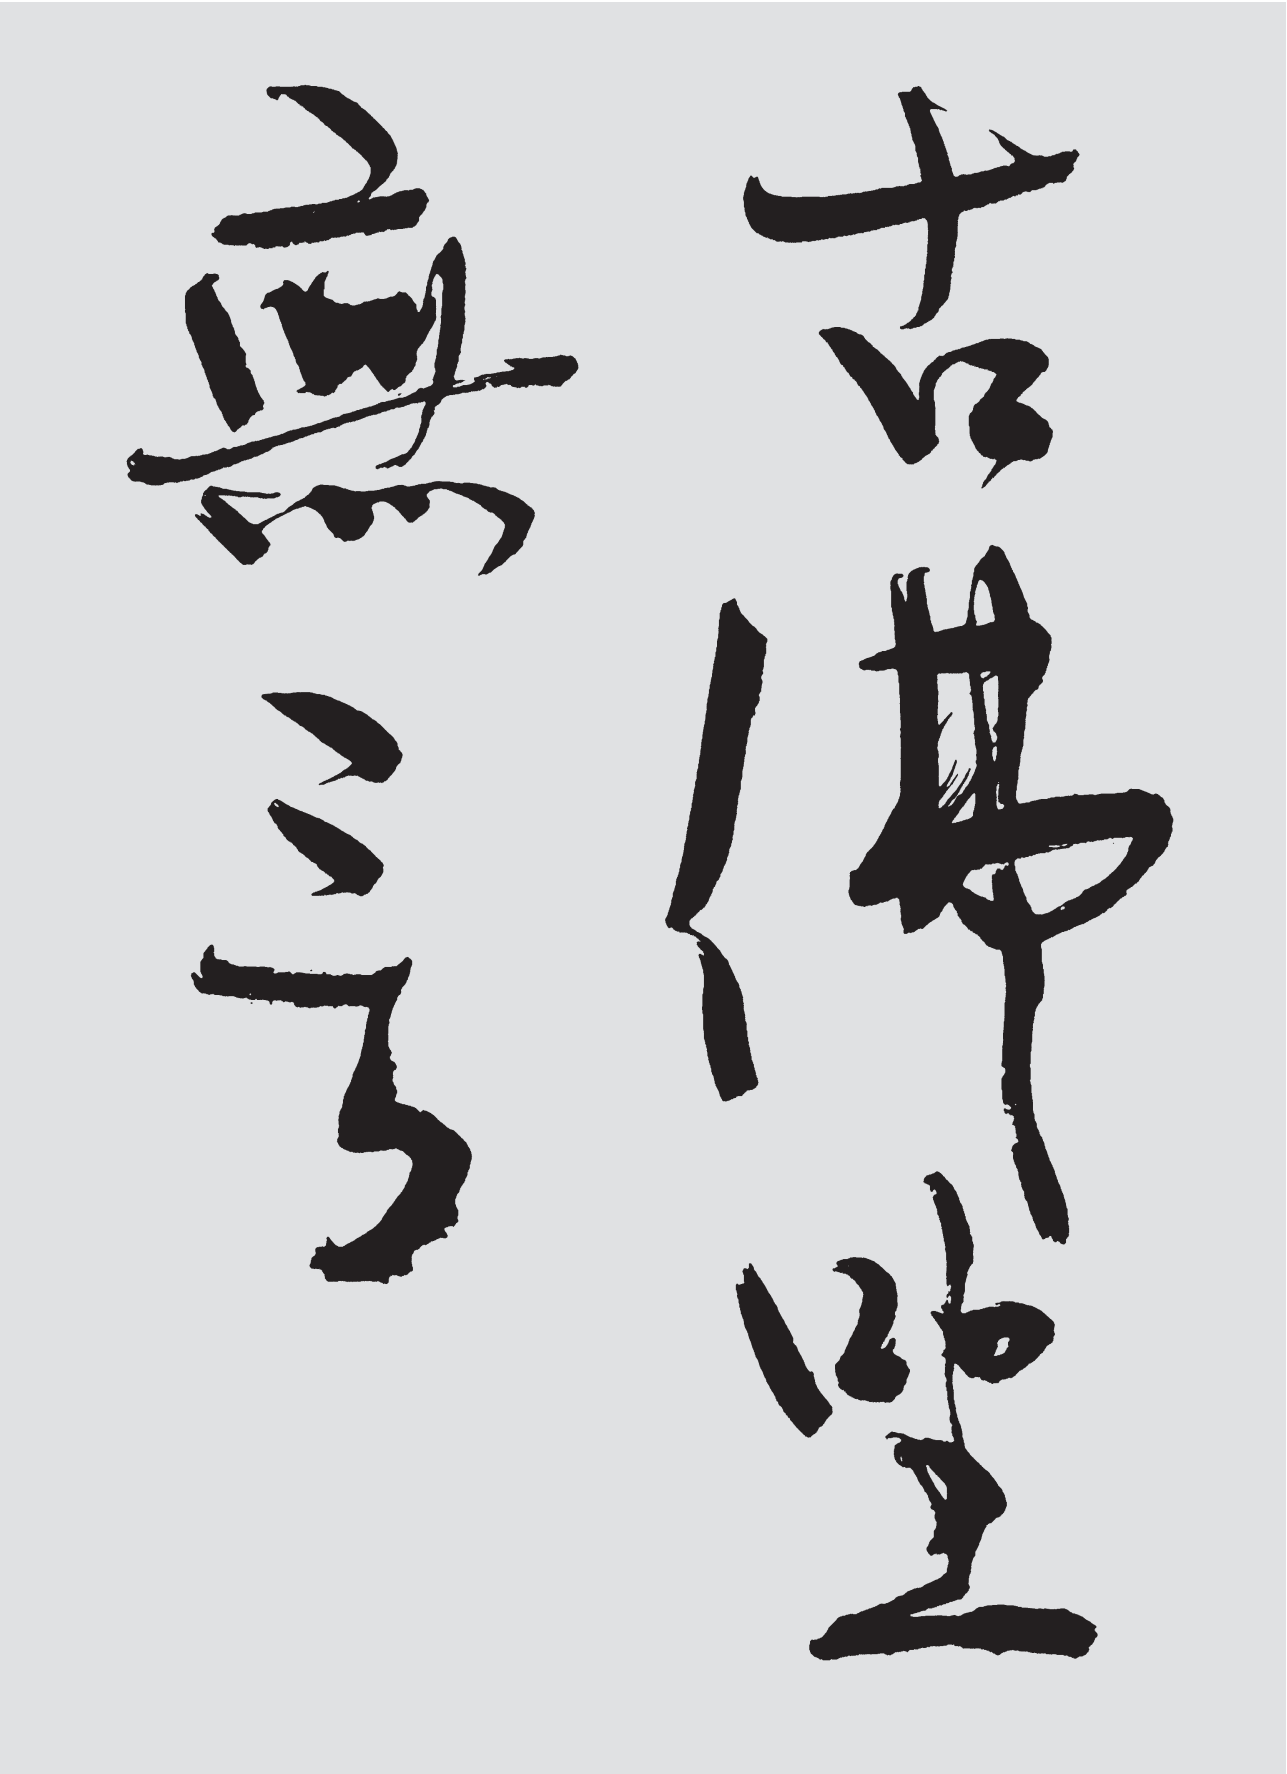 古佛坐
無言